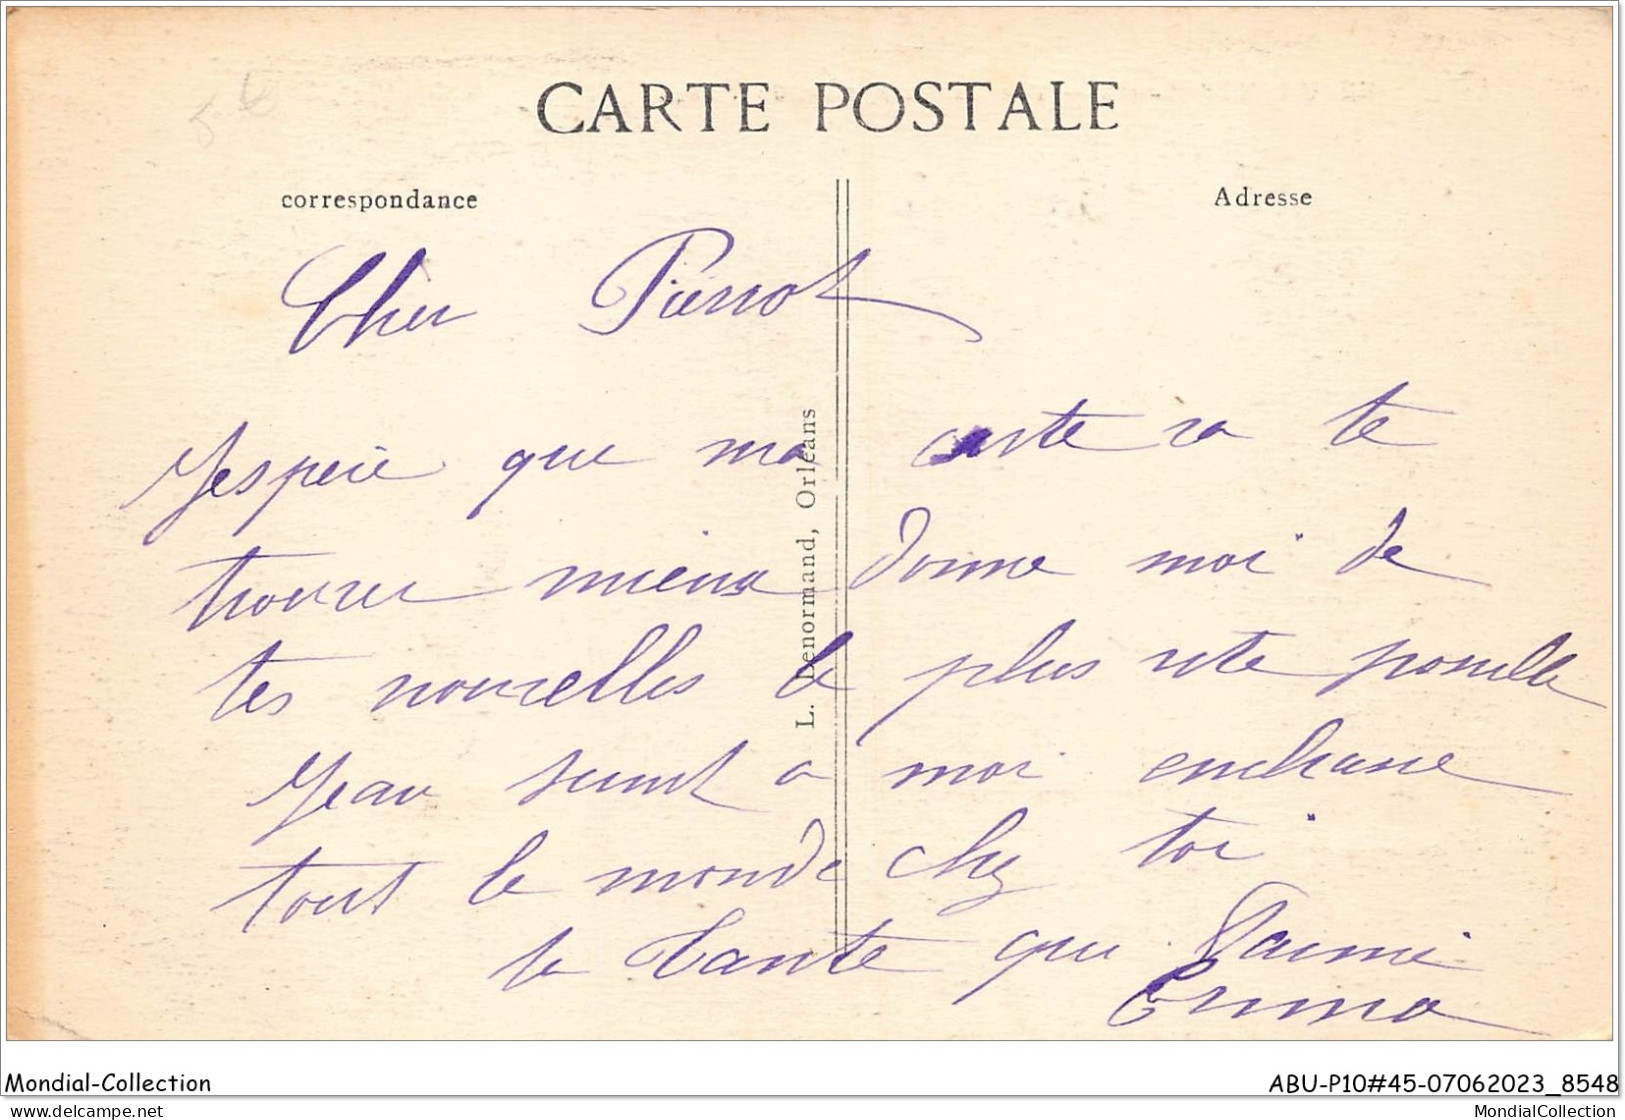 5 €
CARTE POSTALE
correspondance
Adresse
Cher Pierrot
J'espere que ma carte va te
trouver mieux donne moi de
tes nouvelles le plus vite possible
Jean a moi embrasse
tout le monde chez toi
ta Tante qui t'aime
Emma
L. Lenormand, Orléans
Mondial-Collection
ABU-P10#45-07062023_8548
delcampe.net
MondialCollection